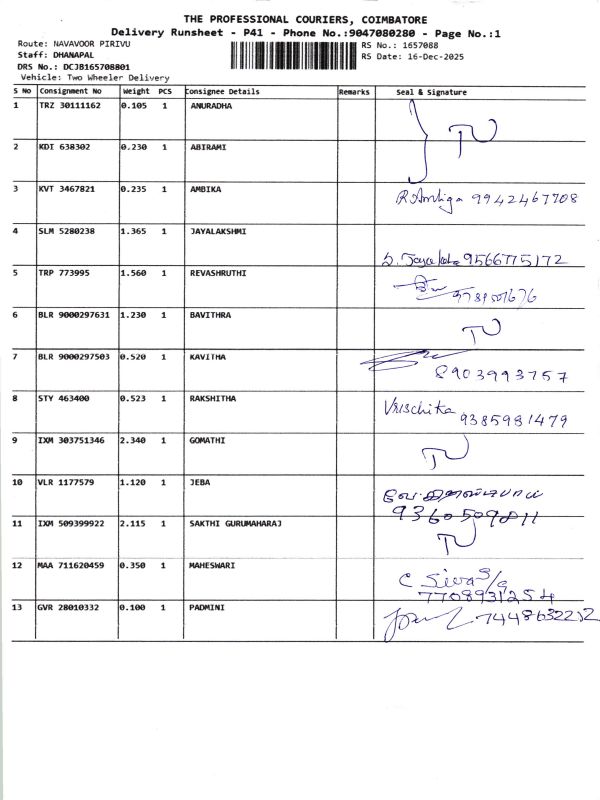 THE PROFESSIONAL COURIERS, COIMBATORE
Delivery Runsheet - P41 - Phone No.:9047080280 - Page No.:1
Route: NAVAVOOR PIRIVU
Staff: DHANAPAL
DRS No.: DCJB165708801
Vehicle: Two Wheeler Delivery
RS No.: 1657088
RS Date: 16-Dec-2025
S No Consignment No Weight PCS Consignee Details Remarks Seal & Signature
1 TRZ 30111162 0.105 1 ANURADHA
2 KDI 638302 0.230 1 ABIRAMI
3 KVT 3467821 0.235 1 AMBIKA 9942467708
4 SLM 5280238 1.365 1 JAYALAKSHMI 9566775172
5 TRP 773995 1.560 1 REVASHRUTHI
6 BLR 9000297631 1.230 1 BAVITHRA
7 BLR 9000297503 0.520 1 KAVITHA 8903993757
8 STY 463400 0.523 1 RAKSHITHA Vrischika
9385981479
9 IXM 303751346 2.340 1 GOMATHI
10 VLR 1177579 1.120 1 JEBA
9360509811
11 IXM 509399922 2.115 1 SAKTHI GURUMAHARAJ
12 MAA 711620459 0.350 1 MAHESWARI C Siva S/o
7708931254
13 GVR 28010332 0.100 1 PADMINI 7448632212